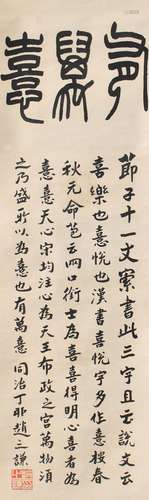 有萬憙
節子十一丈索書此三字且云說文云
喜樂也憙悅也漢書喜悅字多作憙按春
秋元命苞云兩口銜士為喜喜得明心喜者為
憙憙天心宋均注心為天王布政之宮萬物須
之乃盛所以為憙也有萬憙 同治丁卯趙之謙